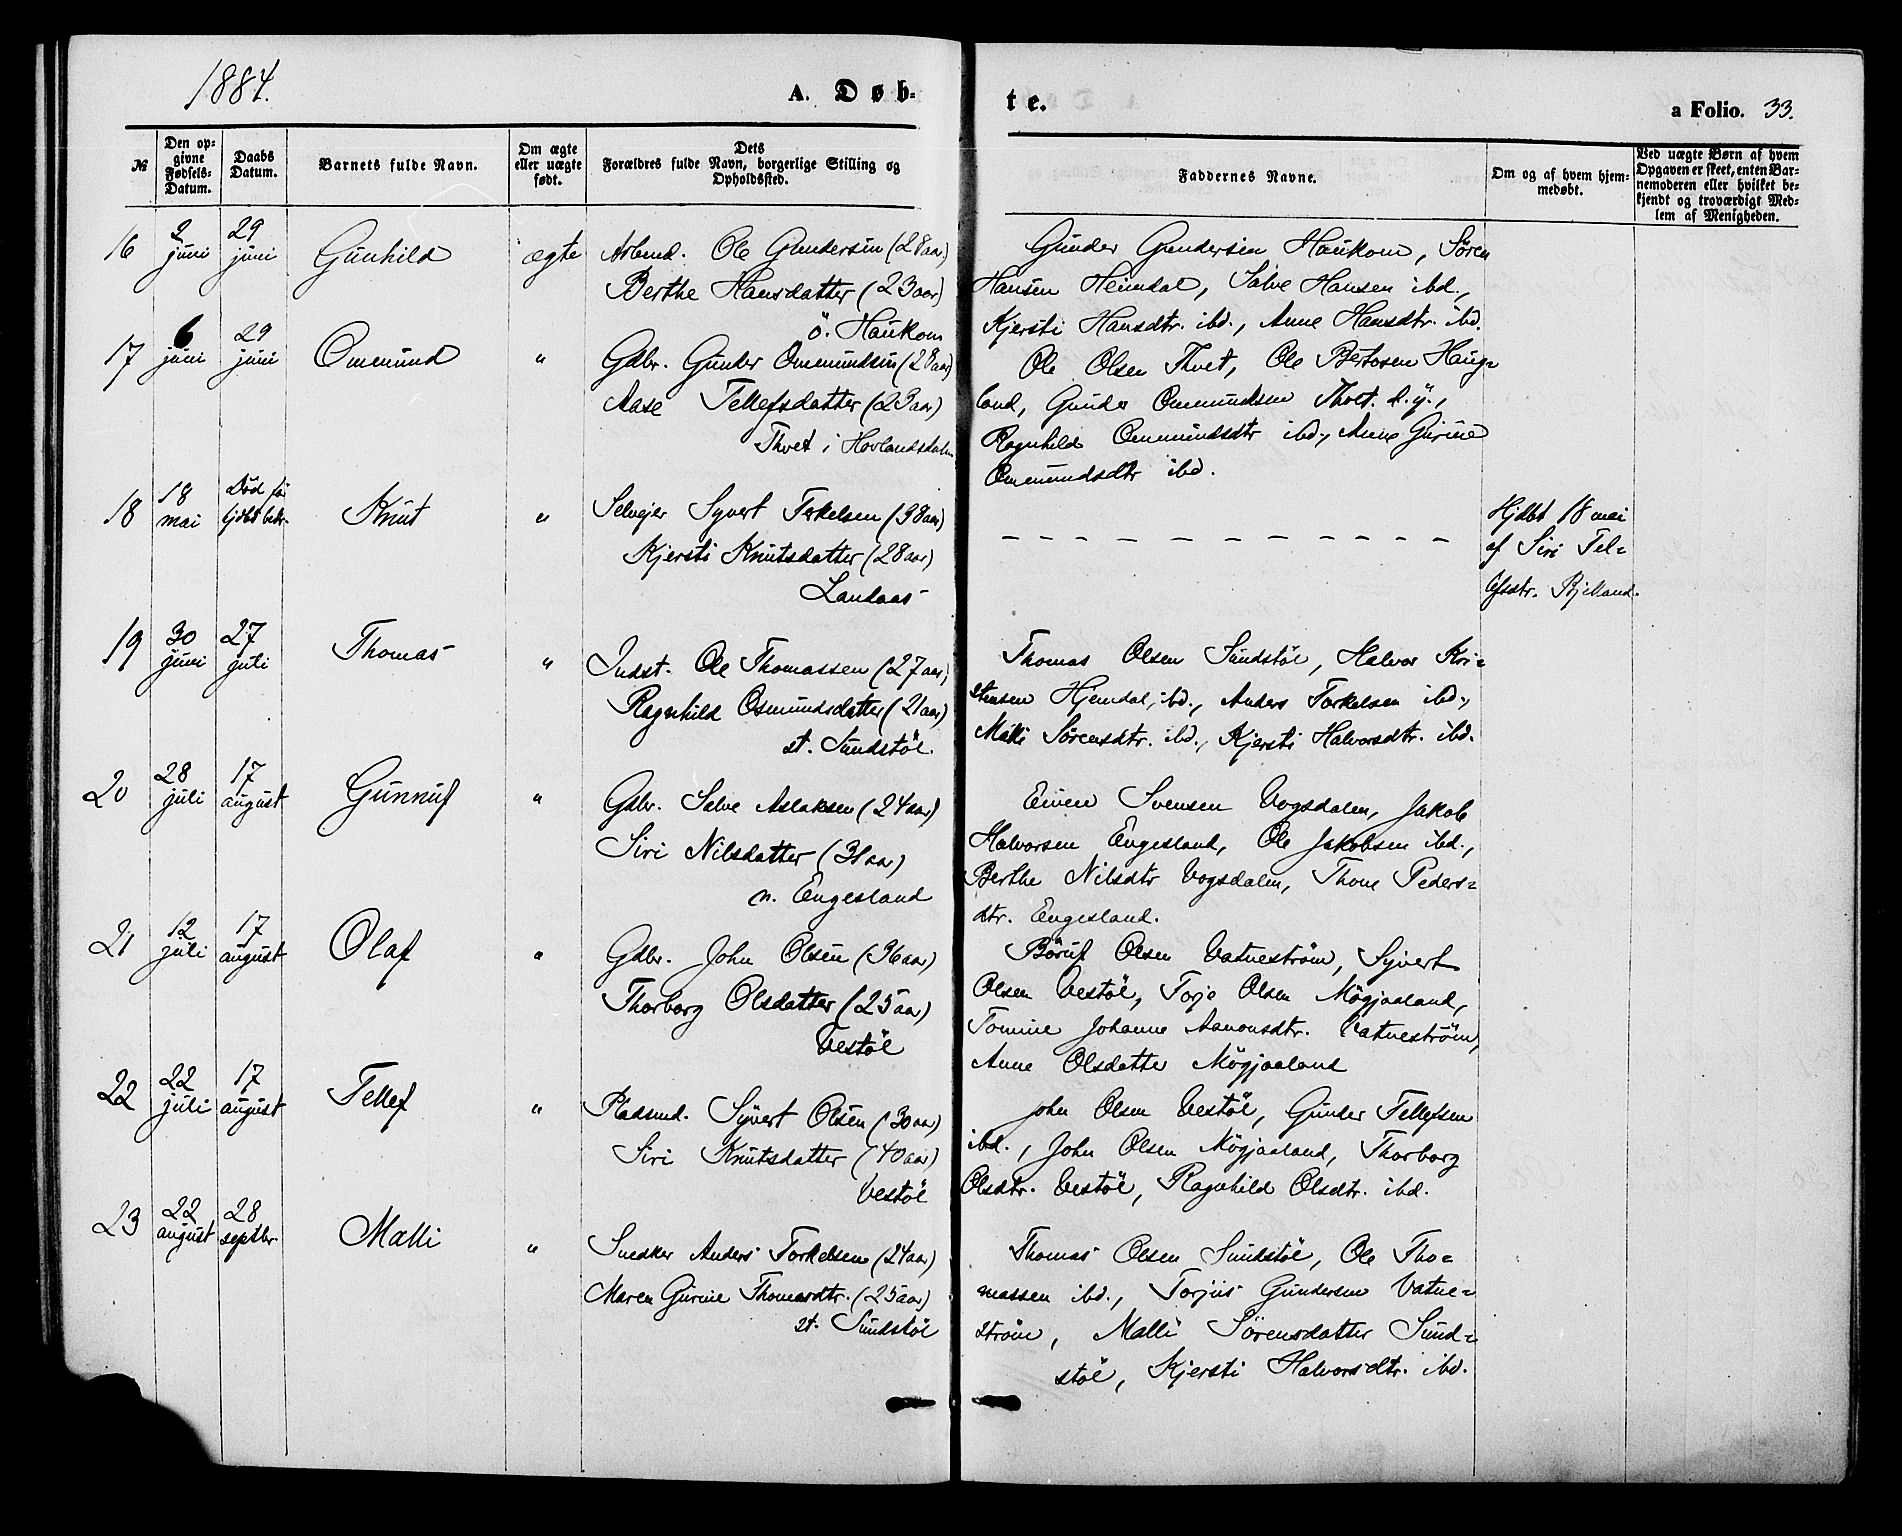 1884.
A. Døb-
te.
a Folio. 33.
№
Den op-
givne
Fødsels-
Datum.
Daabs
Datum.
Barnets fulde Navn.
Om ægte
eller uægte
født.
Dets
Forældres fulde Navn, borgerlige Stilling og
Opholdssted.
Faddernes Navne.
Om og af hvem hjem-
medøbt.
Ved uægte Børn af hvem
Opgaven er skeet, enten Bar-
nemoderen eller hvilket be-
kjendt og troværdigt Med-
lem af Menigheden.
16
2
juni
29
juni
Gunhild
ægte
Arbmd. Ole Gundersen (28 aar)
Berthe Hansdatter (23 aar)
ö. Haukom
Gunder Gundersen Haukom, Sören
Hansen Heimdal, Salve Hansen ibd.,
Kjersti Hansdtr. ibd., Anne Hansdtr. ibd.
17
6
juni
29
juni
Omund
"
Gdbr. Gunder Ommundsen (28 aar)
Aase Tellefsdatter (23 aar)
Thvet i Hovlandsdalen
Ole Olsen Thvet, Ole Bertosen Haug=
land, Gunder Ommundsen Thvet d. y.,
Ragnhild Ommundsdtr ibd., Anne Gurine
Ommundsdtr ibd.
18
18
mai
Död før
hjdbt bekr.
Knut
"
Selvejer Syvert Terkelsen (38 aar)
Kjersti Knutsdatter (28 aar)
Landaas
– – – – – – – – – – – –
Hjdbt 18 mai
af Siri Tel=
lefsdtr. Bjelland.
19
30
juni
27
juli
Thomas
"
Indst. Ole Thomassen (27 aar)
Ragnhild Osmundsdatter (21 aar)
st. Sundstöl.
Thomas Olsen Sundstöl, Halvor Kri=
stensen Hjemdal, ibd., Anders Torkelsen ibd.,
Malli Sörensdtr. ibd., Kjersti Halvorsdtr. ibd.
20
28
juli
17
august
Gunnuf
"
Gdbr. Salve Aslaksen (24 aar)
Siri Nilsdatter (31 aar)
n. Engesland
Eiven Svensen Vogsdalen, Jakob
Halvorsen Engesland, Ole Jakobsen ibd.,
Berthe Nilsdtr Vogsdalen, Thone Peders=
dtr. Engesland.
21
12
juli
17
august
Olaf
"
Gdbr. John Olsen (36 aar)
Thorborg Olsdatter (25 aar)
Vestöl
Böruf Olsen Vatneström, Syvert
Olsen Vestöl, Torje Olsen Mögjaaland,
Tomine Johanne Aanonsdtr. Vatneström,
Anne Olsdatter Mögjaaland
22
22
juli
17
august
Tellef
"
Pladsmd. Syvert Olsen (30 aar)
Siri Knutsdatter (40 aar)
Vestöl
John Olsen Vestöl, Gunder Tellefsen
ibd., John Olsen Mögjaaland, Thorborg
Olsdtr. Vestöl, Ragnhild Olsdtr. ibd.
23
22
august
28
septbr.
Malli
"
Snedker Anders Torkelsen (24 aar)
Maren Gurine Thomasdtr. (25 aar)
st. Sundstöl
Thomas Olsen Sundstöl, Ole Tho=
massen ibd., Torjus Gundersen Vatne=
ström, Malli Sörensdatter Sund=
stöl, Kjersti Halvorsdtr. ibd.